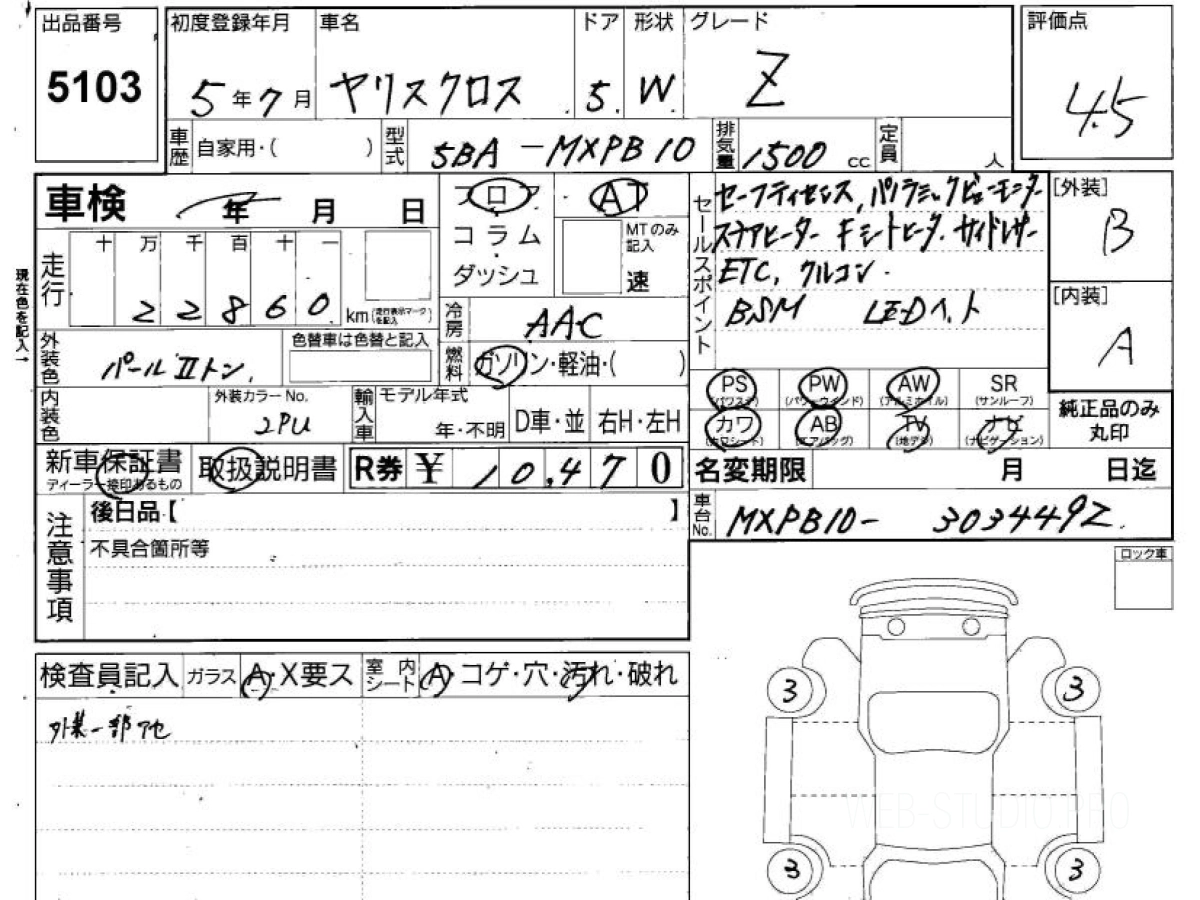 出品番号
5103
初度登録年月
5年7月
車名
ヤリスクロス
ドア
5.
形状
W.
グレード
Z
評価点
4.5
車歴
自家用・( )
型式
5BA-MXPB10
排気量
1500 cc
定員
人
車検
年 月 日
フロア
コラム
ダッシュ
AT
MTのみ記入
速
セールスポイント
セーフティセンス, パノラミックビューモニター
ステアヒーター キ シートヒータ. サイドレザー
ETC, クルコン.
BSM LEDヘット
[外装]
B
[内装]
A
現在色を記入→
走行
十 万 千 百 十 一
22860
km(走行表示マークを記入)
冷房
AAC
外装色
パールIIトン.
色替車は色替と記入
燃料
ガソリン・軽油・( )
内装色
外装カラーNo.
2PU
輸入車
モデル年式
年・不明
D車・並
右H・左H
PS
(パワステ)
PW
(パワーウインド)
AW
(アルミホイル)
SR
(サンルーフ)
カワ
(カワシート)
AB
(エアバッグ)
TV
(地デジ)
ナビ
(ナビゲーション)
純正品のみ
丸印
新車保証書
ディーラー捺印あるもの
取扱説明書
R券
¥10,470
名変期限
月 日迄
注意事項
後日品【 】
不具合箇所等
車台No.
MXPB10- 3034492.
ロック車
検査員記入
ガラス
A・X要ス
室内シート
A・コゲ・穴・汚れ・破れ
外装一部アセ
3
3
3
3
WEB-STUDIO.PRO